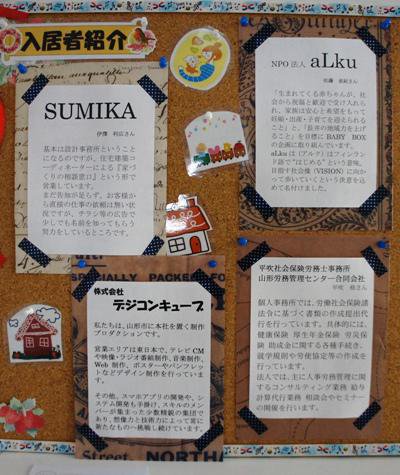 入居者紹介
SUMIKA
伊澤 利広さん
基本は設計事務所ということ
になるのですが、住宅建築コ
ーディネーターによる『家づ
くりの相談窓口』という形で
営業しています。
まだ告知が足らず、お客様か
ら直接の仕事の依頼は無い状
況ですが、チラシ等の広告で
少しでも名前を知ってもらう
努力をしているところです。
NPO 法人 aLku
「生まれてくる赤ちゃんが、社
会から祝福と歓迎で受け入れら
れ、家族は安心と希望をもって
妊娠・出産・子育てを迎えられる
こと」と、「長井の地域力を上げ
ること」を目標に BABY BOX
の企画に取り組んでいます。
aLku は（アルク）はフィンラン
ド語で“はじめる”という意味。
目指す社会像（VISION）に向か
って歩いていくという決意を込
めて名付けました。
SPECIALLY PACKED FO
株式会社
デジコンキューブ
私たちは、山形市に本社を置く制作
プロダクションです。
営業エリアは東日本で、テレビ CM
や映像・ラジオ番組制作、音楽制作、
Web 制作、ポスターやパンフレッ
トなどデザイン制作を行っていま
す。
その他、スマホアプリの開発や、シ
ステム開発も手掛け、スキルのメン
バーが集まった少数精鋭の集団で
あり、想像力と技術力によって常に
新たなものへ挑戦し続けています。
Street
NORTHA
平吹社会保険労務士事務所
山形労務管理センター合同会社
個人事務所では、労働社会保険諸
法令に基づく書類の作成提出代
行を行っています。具体的には、
健康保険 厚生年金保険 労災保
険 助成金に関する各種手続き、
就学規則や労使協定等の作成を
行っています。
法人では、主に人事労務管理に関
するコンサルティング業務 給与
計算代行業務 相談会やセミナー
の開催を行います。